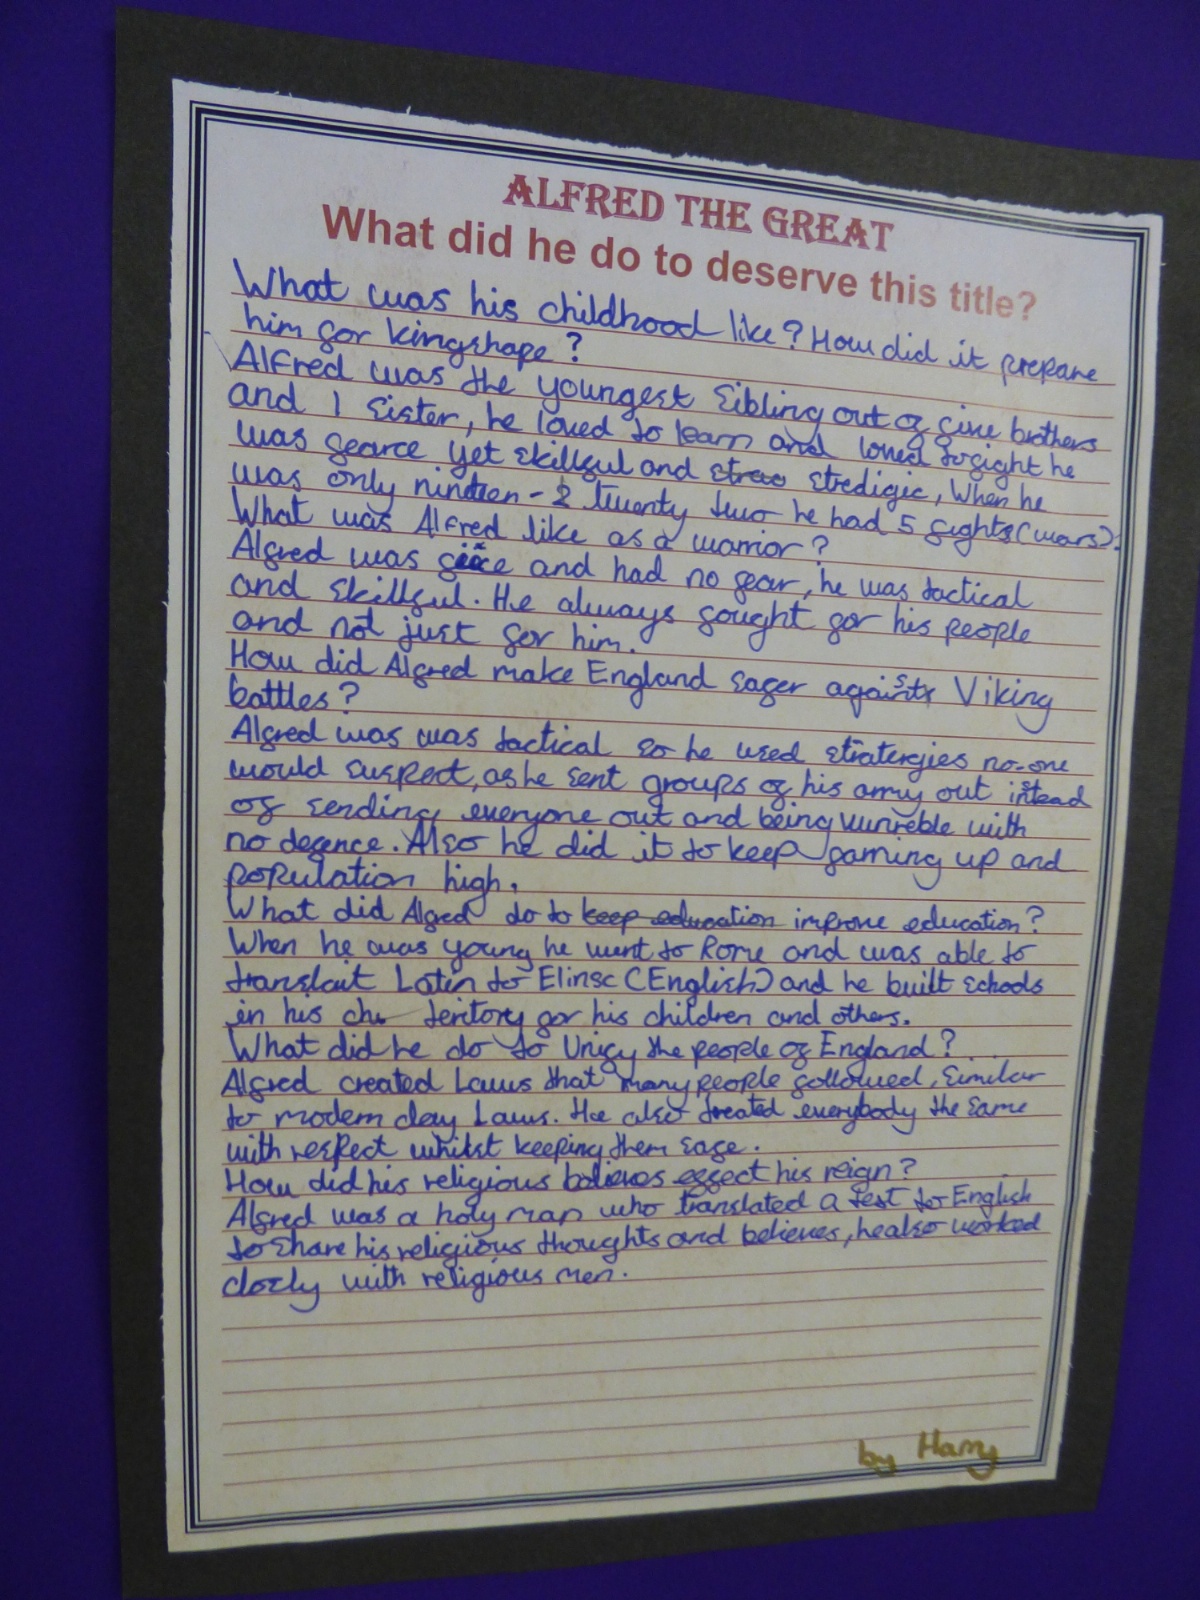 ALFRED THE GREAT
What did he do to deserve this title?
What was his childhood like? How did it prepare
him for kingshape?
Alfred was the youngest sibling out of five brothers
and 1 sister, he loved to learn and loved to fight he
was fearce yet skillful and strao stredigic, When he
was only ninteen - 2 twenty two he had 5 fights (wars).
What was Alfred like as a warrior?
Alfred was and had no fear, he was tactical
and skillful. He always fought for his people
and not just for him.
How did Alfred make England safer against Viking
battles?
Alfred was was tactical so he used stratergies no-one
would suspect, as he sent groups of his army out intead
of sending everyone out and being vunreble with
no defence. Also he did it to keep farming up and
population high.
What did Alfred do to keep education improve education?
When he was young he went to Rome and was able to
translait Latin to Elinsc (English) and he built schools
in his teritory for his children and others.
What did he do to Unify the people of England?
Alfred created Laws that many people followed, similar
to modern day Laws. He also treated everybody the same
with respect whilst keeping them safe.
How did his religious believes effect his reign?
Alfred was a holy man who translated a test to English
to share his religious thoughts and believes, he also worked
closly with religious men.
by Harry